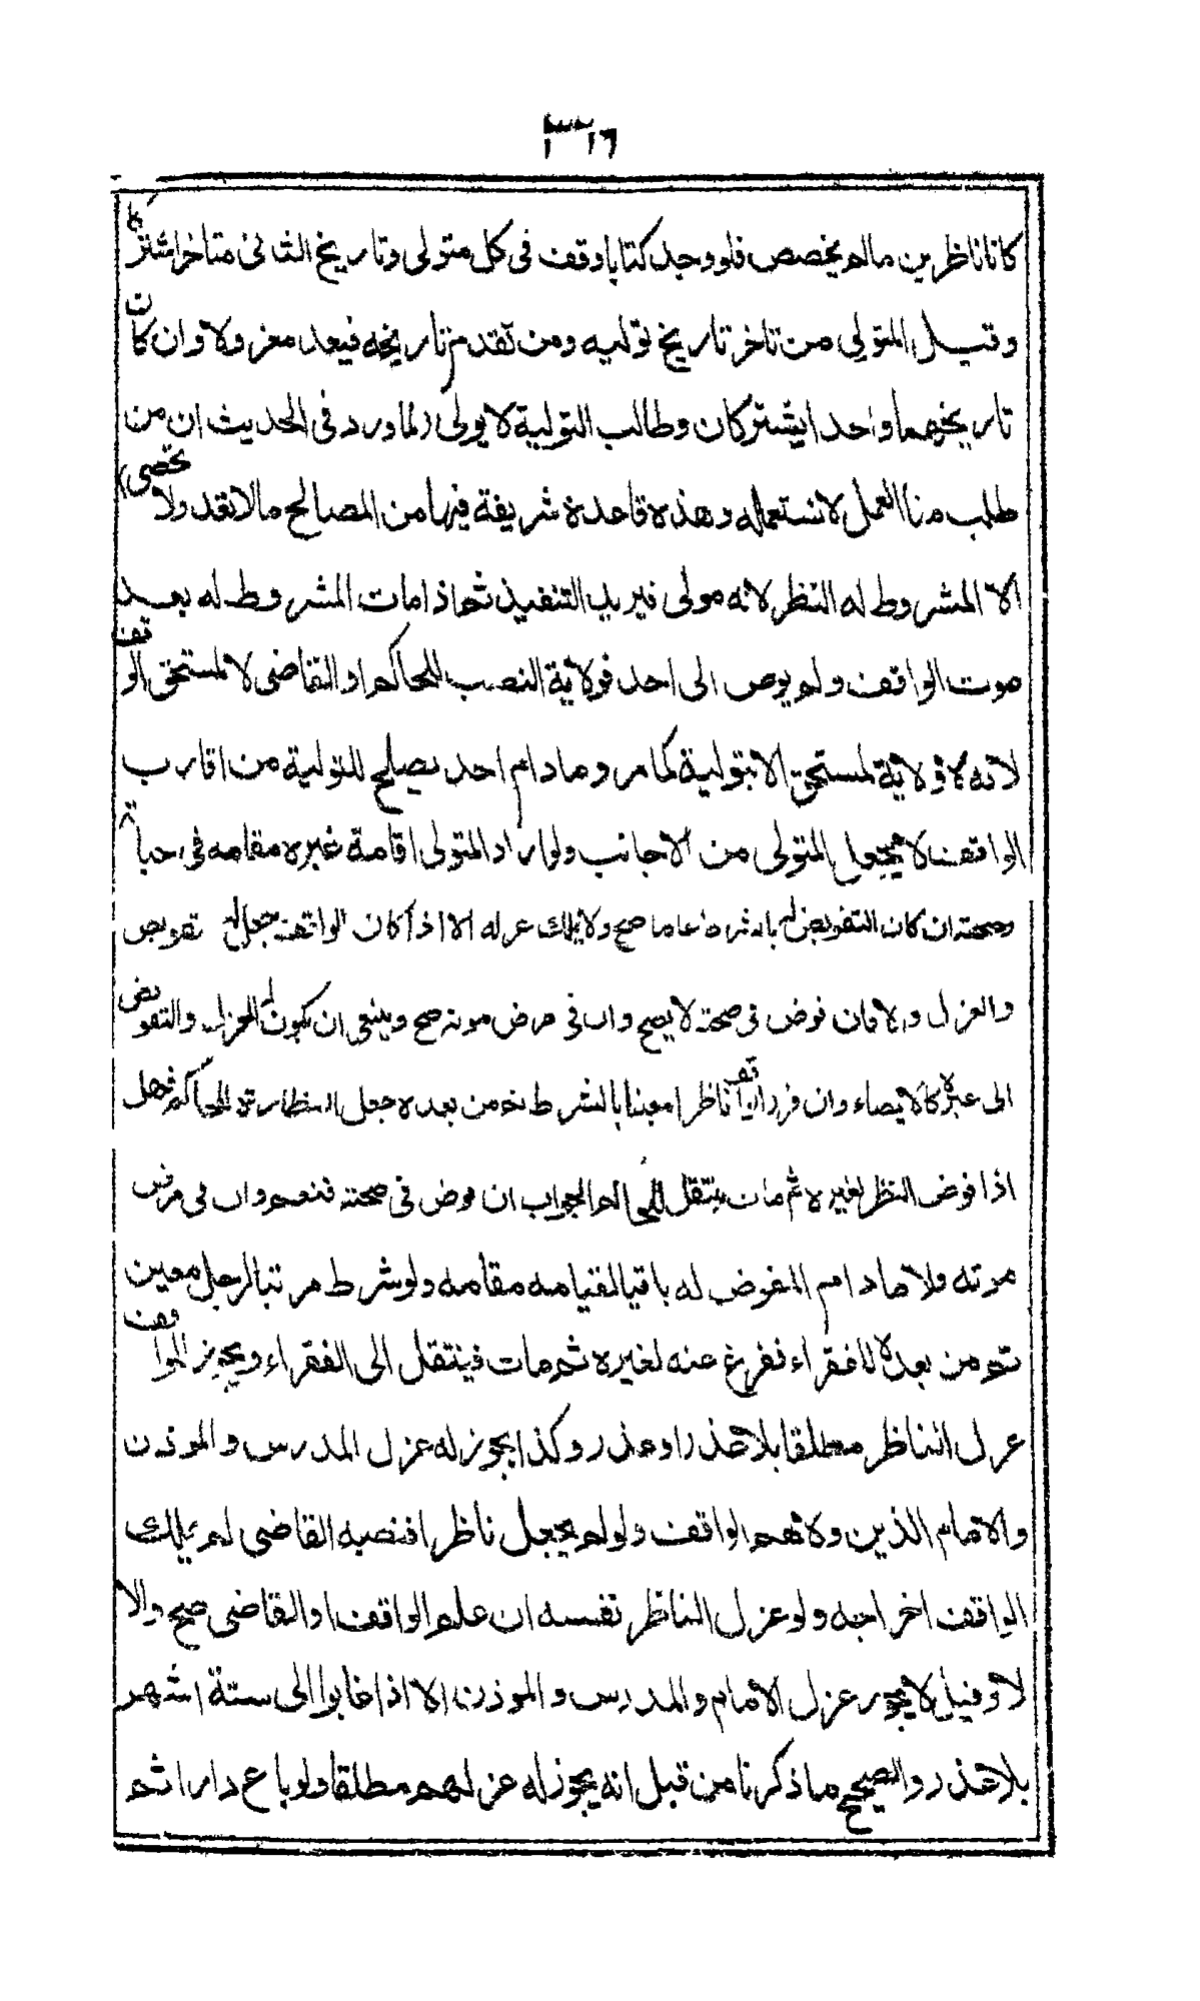 ٣١٦
كانا ناظرين مالم يخصص فلو وجد كتابا وقف فى كل متولى وتاريخ الثانى متاخر اشتركا
وقيل المتولى من تاخر تاريخ توليه ومن تقدم تاريخه فيعد معزولا وان كان
تاريخهما واحدا يشتركان وطالب التولية لا يولى لما ورد فى الحديث ان من
طلب منا العمل لا نستعمله وهذه قاعدة شريفة فيها من المصالح مالا تعد ولا تحصى
الا المشروط له النظر لانه مولى فيريد التنفيذ ثم اذا مات المشروط له بعد
موت الواقف ولم يوص الى احد فولاية النصب للحاكم او القاضى لا لمستحق الوقف
لانه لا ولاية لمستحق الا بتولية كما مر وما دام احد يصلح للتولية من اقارب
الواقف لا يجعل المتولى من الاجانب ولو اراد المتولى اقامة غيره مقامه فى حياته
وصحته ان كان التفويض له بالشرط عاما صح ولا يملك عزله الا اذا كان الواقف جعل له تفويض
والعزل والا فان فوض فى صحته لا يصح وان فى مرض موته صح وينبغى ان يكون له العزل والتفويض
الى غيره كالايصاء وان قرر الواقف ناظرا معينا بالشرط ثم من بعده جعل النظارة للحاكم فهل
اذا فوض النظر لغيره ثم مات ينتقل للحاكم الجواب ان فوض فى صحته فنعم وان فى مرض
موته فلا مادام المفوض له باقيا لقيامه مقامه ولو شرط مرتبا لرجل معين
ثم من بعده للفقراء ففرغ عنه لغيره ثم مات فينتقل الى الفقراء ويجوز للواقف
عزل الناظر مطلقا بلا عذر او عذر وكذا يجوز له عزل المدرس والموذن
والامام الذين ولاهم الواقف ولو لم يجعل ناظرا فنصبه القاضى لم يملك
الواقف اخراجه ولو عزل الناظر نفسه ان علم الواقف او القاضى صح والا
لا وقيل لا يجوز عزل الامام والمدرس والموذن الا اذا غابوا الى ستة اشهر
بلا عذر والصحيح ما ذكرنا من قبل انه يجوز له عزلهم مطلقا ولو باع دارا ثم